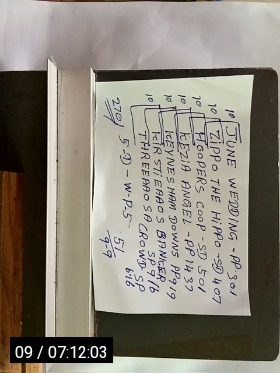 10 JUNE WEDDING - PP 301
10 ZIPPO THE HIPPO - SD 407
10 HOOPERS COOP - SD 501
10 KEZIA ANGEL - PP 1437
10 KEYNESHAM DOWNS PP 919
10 KIRSTIEROOS BANGER SD 916
10 THREEROOSACROWD SP 616
270/ 5-D-W-P-5
51
9-9
09 / 07:12:03